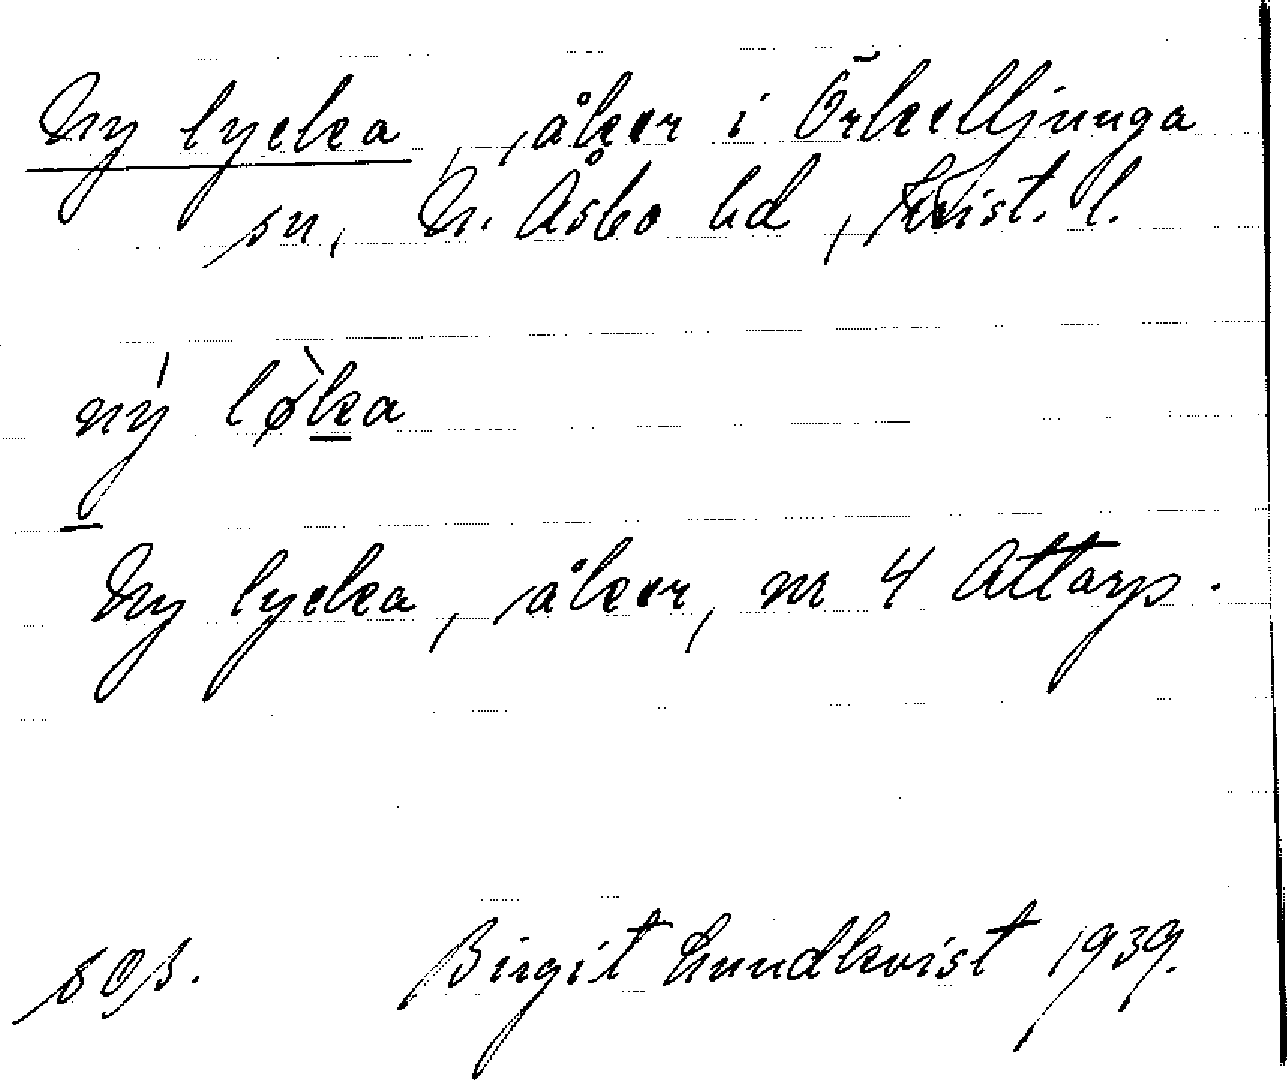 Ny lycka, åker i Örkelljunga
sn, N. Åsbo hd, Krist. l.
ný lø̀ka
Ny lycka, åker, nr 4 Attarp.
Birgit Lundkvist 1939.